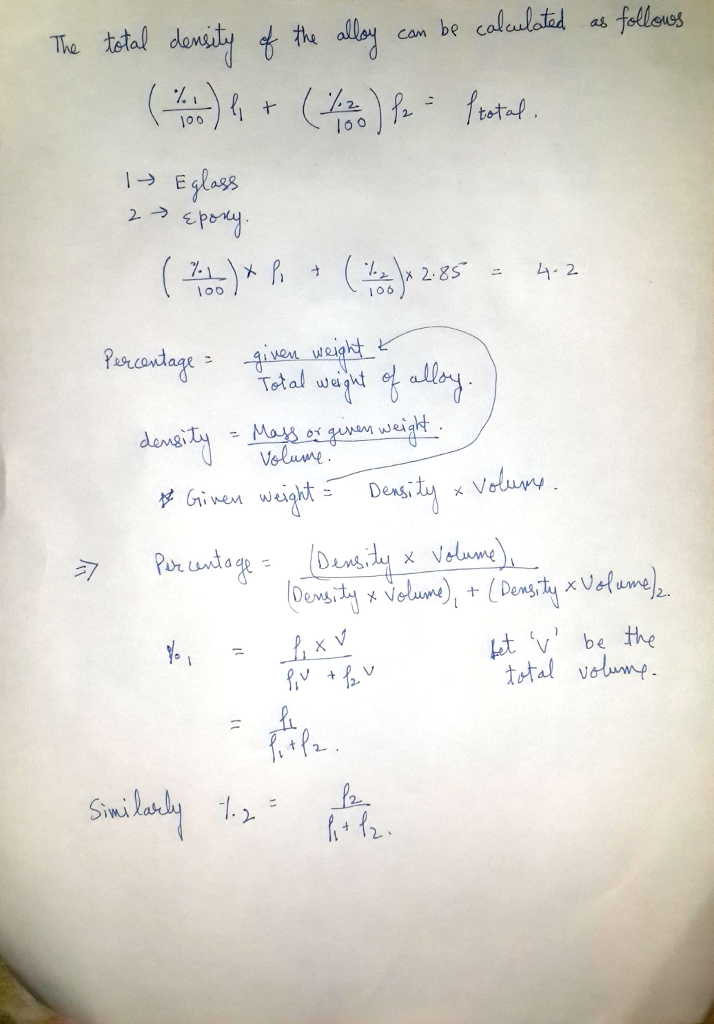 The total density of the alloy can be calculated as follows
(%1/100) ρ1 + (%2/100) ρ2 = ρtotal.
1 → E glass
2 → Epoxy.
(%1/100) × ρ1 + (%2/100) × 2.85 = 4.2
Percentage = given weight / Total weight of alloy.
density = Mass or given weight. / Volume.
Given weight = Density × Volume.
⇒ Percentage = (Density × Volume)1 / (Density × Volume)1 + (Density × Volume)2.
%1 = ρ1 × V / ρ1V + ρ2V
Let 'V' be the total volume.
= ρ1 / ρ1 + ρ2.
Similarly %2 = ρ2 / ρ1 + ρ2.